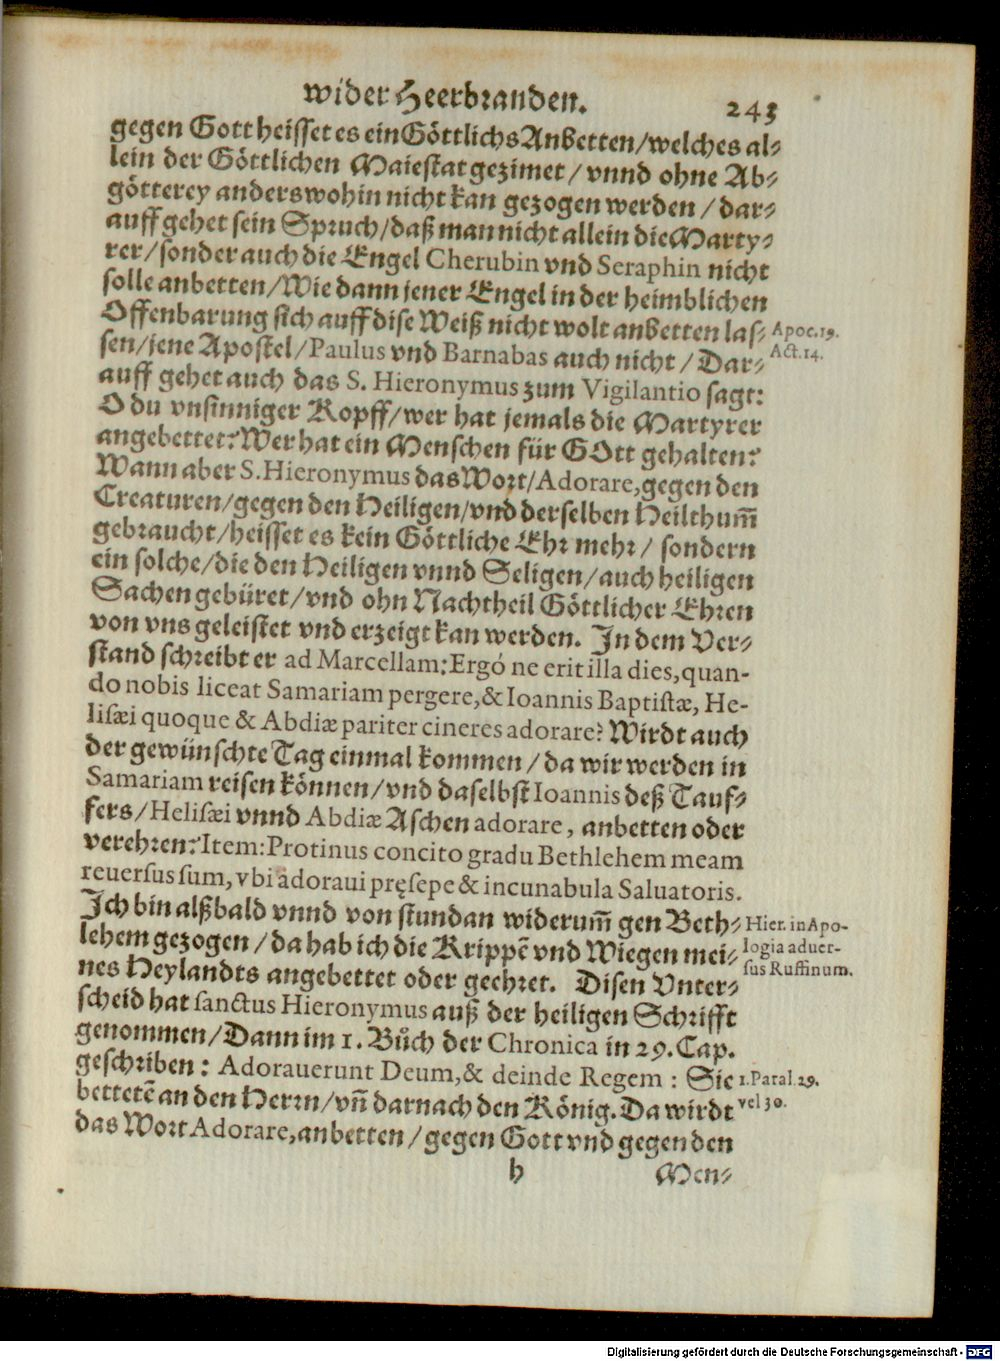 wider Heerbranden. 243
gegen Gott heisset es ein Göttlichs Anbetten/welches al-
lein der Göttlichen Maiestat gezimet / vnnd ohne Ab-
götterey anderswohin nicht kan gezogen werden / dar-
auff gehet sein Spruch/daß man nicht allein die Marty-
rer/sonder auch die Engel Cherubin vnd Seraphin nicht
solle anbetten/Wie dann jener Engel in der heimblichen
Offenbarung sich auff dise Weiß nicht wolt anbetten las-
Apoc.19.
sen/jene Apostel/Paulus vnd Barnabas auch nicht / Dar-
Act.14.
auff gehet auch das S. Hieronymus zum Vigilantio sagt:
O du vnsinniger Kopff/wer hat jemals die Martyrer
angebettet? Wer hat ein Menschen für GOtt gehalten?
Wann aber S. Hieronymus das Wort/Adorare, gegen den
Creaturen/gegen den Heiligen/vnd derselben Heilthum̃
gebraucht/heisset es kein Göttliche Ehr mehr / sondern
ein solche/die den Heiligen vnnd Seligen/auch heiligen
Sachen gebüret/vnd ohn Nachtheil Göttlicher Ehren
von vns geleistet vnd erzeigt kan werden. In dem Ver-
stand schreibt er ad Marcellam: Ergó ne erit illa dies, quan-
do nobis liceat Samariam pergere, & Ioannis Baptistæ, He-
lisæi quoque & Abdiæ pariter cineres adorare? Wirdt auch
der gewünschte Tag einmal kommen / da wir werden in
Samariam reisen können/vnd daselbst Ioannis deß Tauf-
fers/Helisæi vnnd Abdiæ Aschen adorare, anbetten oder
verehren? Item: Protinus concito gradu Bethlehem meam
reuersus sum, vbi adoraui pręsepe & incunabula Saluatoris.
Ich bin alßbald vnnd von stundan widerum̃ gen Beth-
Hier. in Apo-
lehem gezogen / da hab ich die Krippẽ vnd Wiegen mei-
logia aduer-
nes Heylandts angebettet oder geehret. Disen Vnter-
sus Ruffinum.
scheid hat sanctus Hieronymus auß der heiligen Schrifft
genommen/Dann im 1. Bůch der Chronica in 29. Cap.
geschriben: Adorauerunt Deum, & deinde Regem: Sie
1. Paral. 29.
bettetẽ an den Herrn/vñ darnach den König. Da wirdt
vel 30.
das Wort Adorare, anbetten / gegen Gott vnd gegen den
h Men-
Digitalisierung gefördert durch die Deutsche Forschungsgemeinschaft - DFG